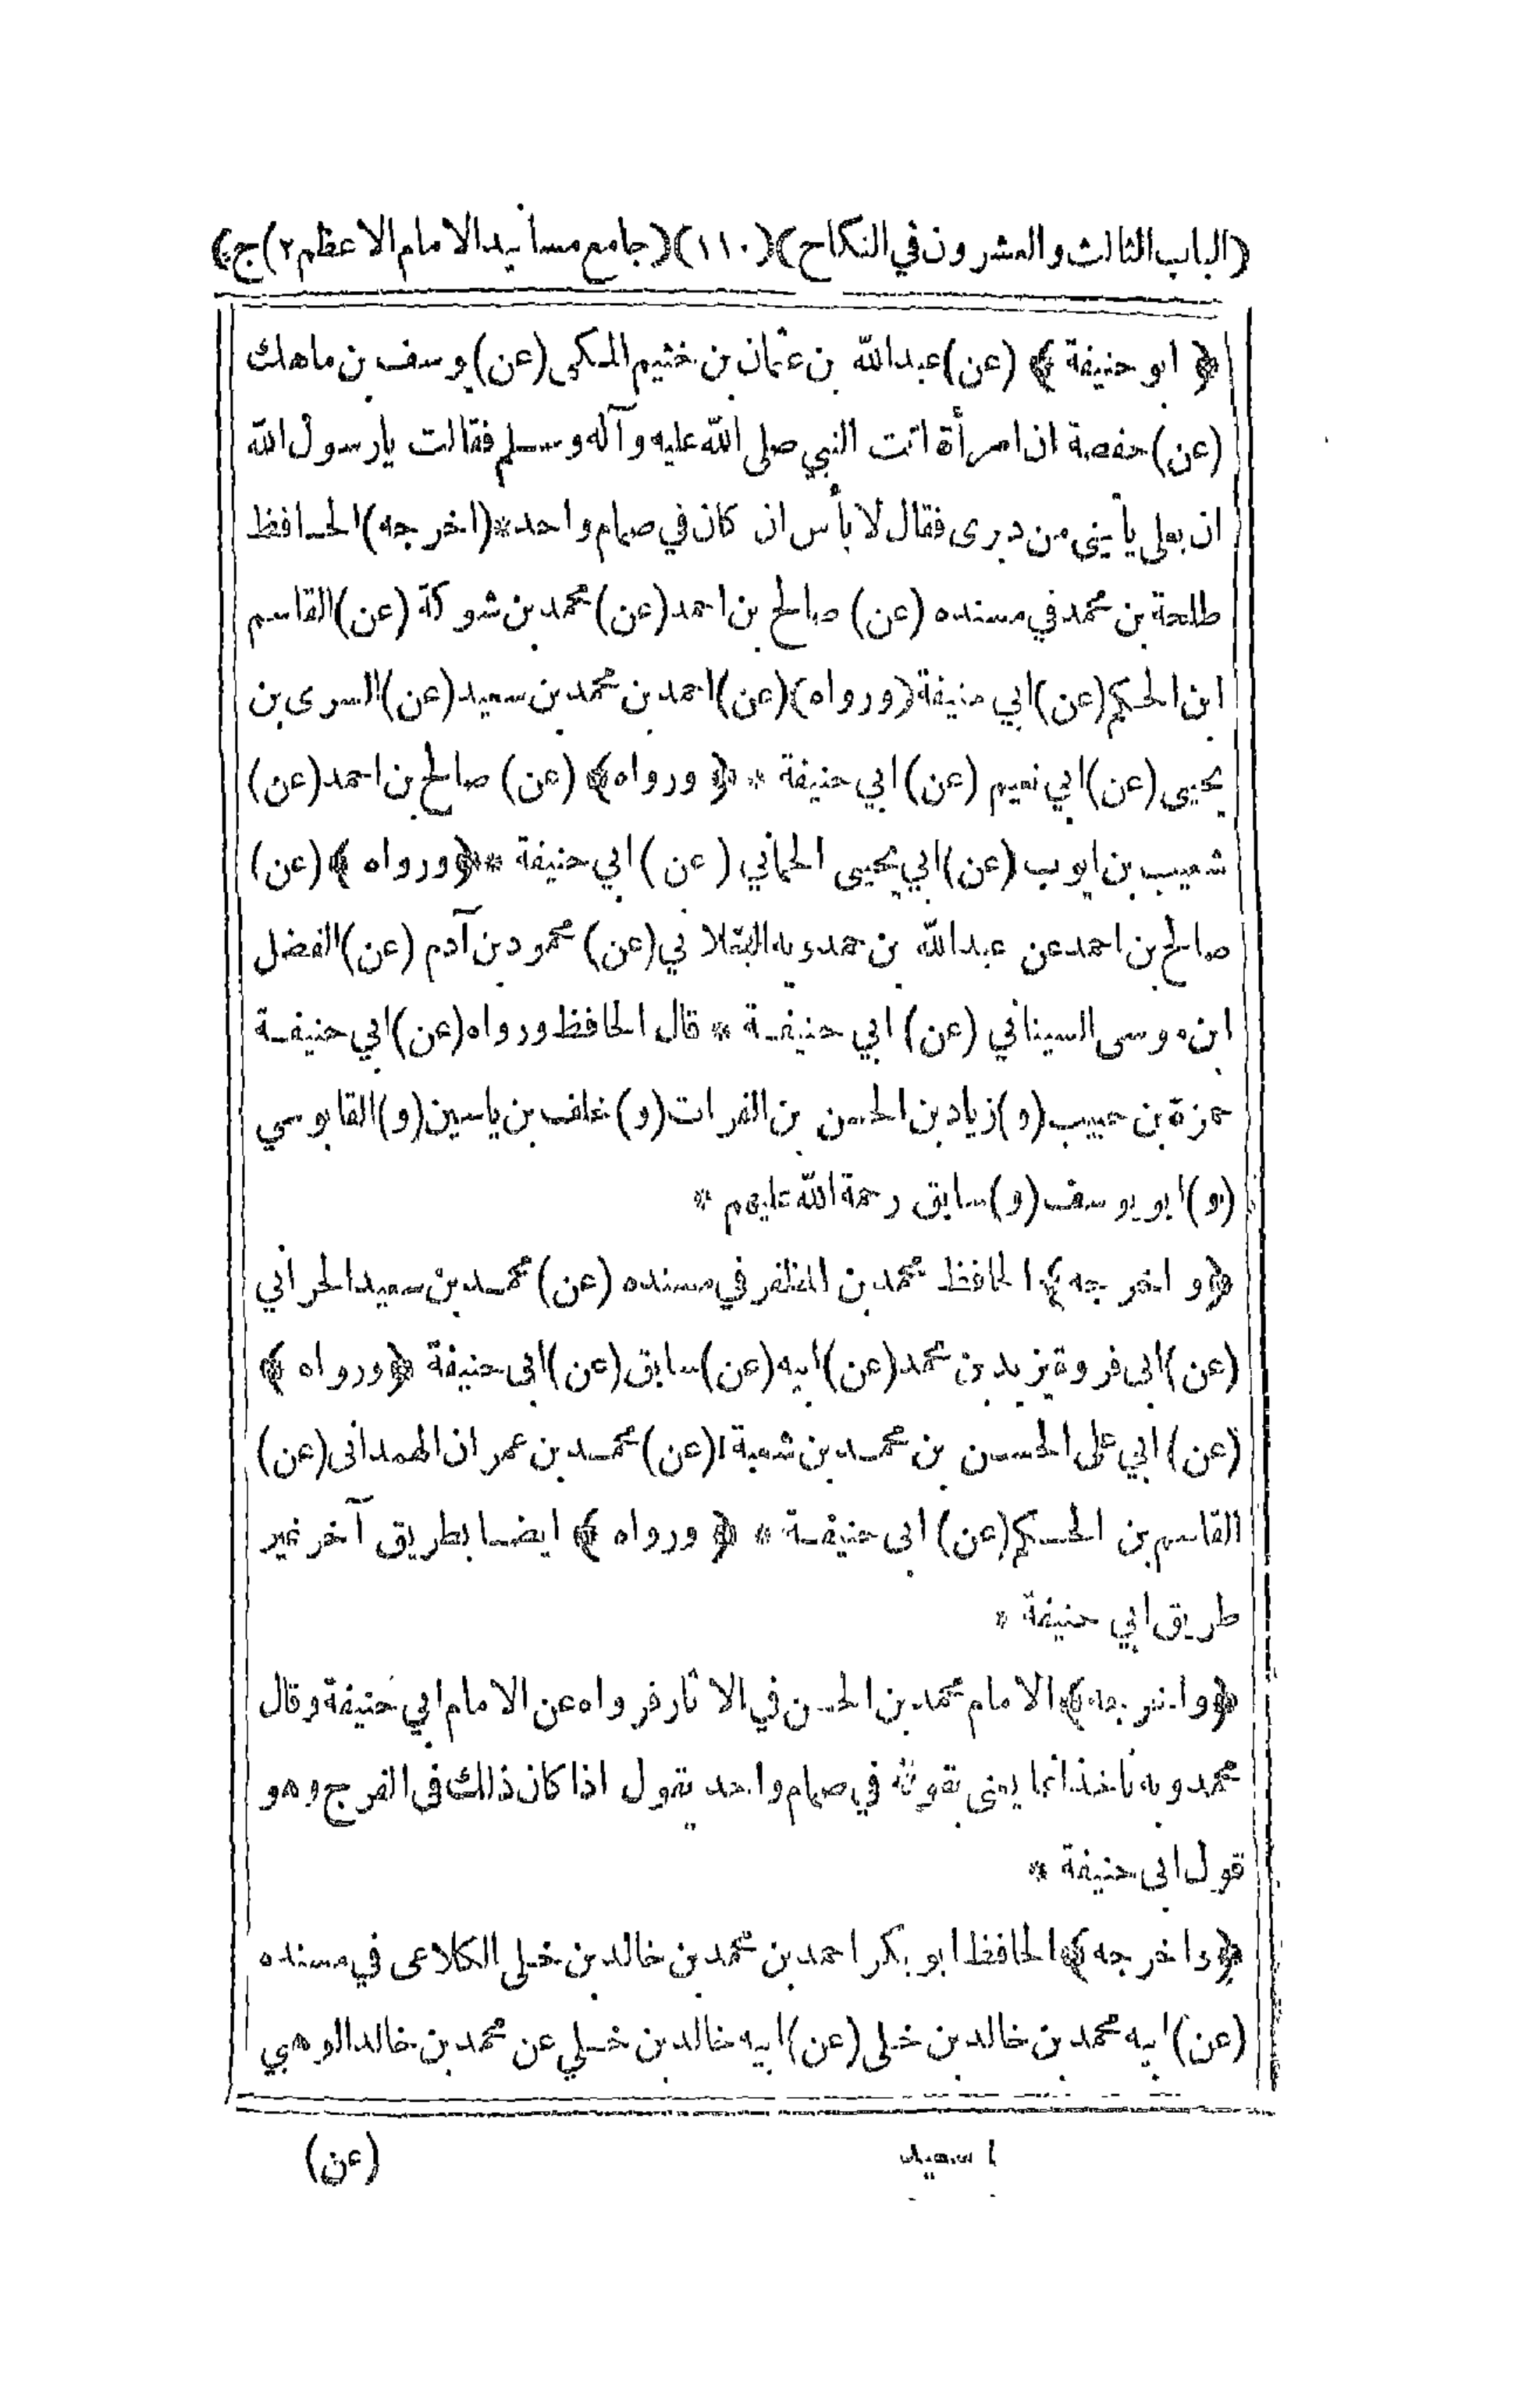 ﴿الباب الثالث والعشرون في النكاح﴾ (١١٠) ﴿جامع مسانيد الامام الاعظم ٢) ج﴾
﴿ ابو حنيفة ﴾ (عن) عبدالله بن عثمان بن خثيم المكى (عن) يوسف بن ماهك
(عن) حفصة ان امرأة اتت النبي صلى الله عليه وآله وسلم فقالت يا رسول الله
ان بعلى يأتينى من دبرى فقال لا بأس ان كان في صمام واحد * (اخرجه) الحافظ
طلحة بن محمد في مسنده (عن) صالح بن احمد (عن) محمد بن شوكة (عن) القاسم
ابن الحكم (عن) ابي حنيفة (ورواه) (عن) احمد بن محمد بن سعيد (عن) السرى بن
يحيى (عن) ابي نعيم (عن) ابي حنيفة * ﴿ ورواه ﴾ (عن) صالح بن احمد (عن)
شعيب بن ايوب (عن) ابي يحيى الحماني (عن) ابي حنيفة * ﴿ورواه ﴾ (عن)
صالح بن احمد عن عبدالله بن حمدويه البغلاني (عن) محمود بن آدم (عن) الفضل
ابن موسى السيناني (عن) ابي حنيفة * قال الحافظ ورواه (عن) ابي حنيفة
حمزة بن حبيب (و) زياد بن الحسن بن الفرات (و) خلف بن ياسين (و) القابوسي
(و) ابو يوسف (و) سابق رحمة الله عليهم *
﴿و اخرجه﴾ الحافظ محمد بن المظفر في مسنده (عن) محمد بن سعيد الحراني
(عن) ابى فروة يزيد بن محمد (عن) ابيه (عن) سابق (عن) ابى حنيفة ﴿ورواه ﴾
(عن) ابي على الحسن بن محمد بن شعبة ١ (عن) محمد بن عمران الهمدانى (عن)
القاسم بن الحكم (عن) ابى حنيفة * ﴿ ورواه ﴾ ايضا بطريق آخر غير
طريق ابي حنيفة *
﴿واخرجه﴾ الامام محمد بن الحسن في الآثار فرواه عن الامام ابي حنيفة وقال
محمد وبه نأخذ انما يعنى بقوله في صمام واحد يقول اذا كان ذلك فى الفرج وهو
قول ابى حنيفة *
﴿واخرجه﴾ الحافظ ابو بكر احمد بن محمد بن خالد بن خلى الكلاعى في مسنده
(عن) ابيه محمد بن خالد بن خلى (عن) ابيه خالد بن خلي عن محمد بن خالد الوهبي
١ سعيد
(عن)